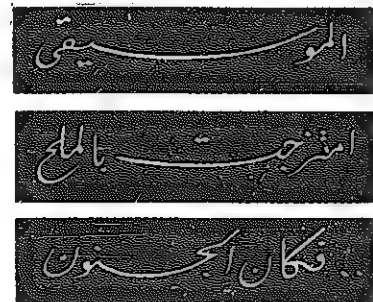 الموسيقى
امتزجت بالملح
.. فكان الجنون